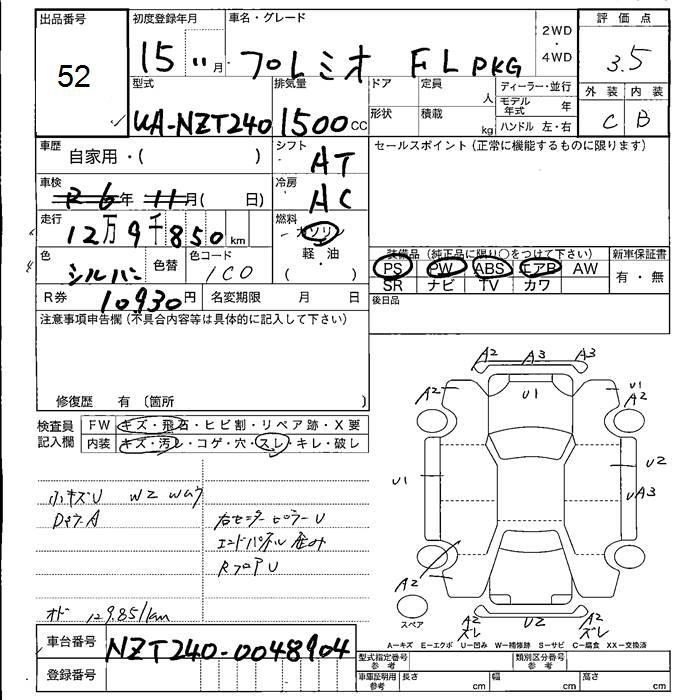 出品番号 初度登録年月 車名・グレード 2WD・4WD 評価点
52 15 11月 プレミオ F L PKG 3.5
型式 排気量 ドア 定員 人 ディーラー・並行 外装 内装
UA-NZT240 1500cc 形状 積載 kg モデル年式 年 C B
ハンドル 左・右
車歴 自家用・( ) シフト AT セールスポイント(正常に機能するものに限ります)
車検 年 11月( 日) 冷房 AC
走行 12万9千850km 燃料 ガソリン
軽・油
( )
色 シルバー 色替 色コード 1C0
装備品(純正品に限り○をつけて下さい) 新車保証書
PS PW ABS エアB AW 有・無
SR ナビ TV カワ
R券 10930円 名変期限 月 日 後日品
注意事項申告欄(不具合内容等は具体的に記入して下さい)
修復歴 有〔箇所 〕
検査員記入欄 FW キズ・飛石・ヒビ割・リペア跡・X要
内装 キズ・汚レ・コゲ・穴・スレ・キレ・破レ
小キズU W2
A
右センターピラーU
エンドパネル歪み
RフロアU
129.851km
A2 A3 A3
A2 U1 U1 A2
U1 U2
UA3
A2
スペア A2 ズレ U2 A2 ズレ
A－キズ E－エクボ U－凹み W－補修跡 S－サビ C－腐食 XX－交換済
車台番号 NZT240-0048904
型式指定番号 参考 類別区分番号 参考
登録番号 車庫証明用 参考 長さ cm 幅 cm 高さ cm